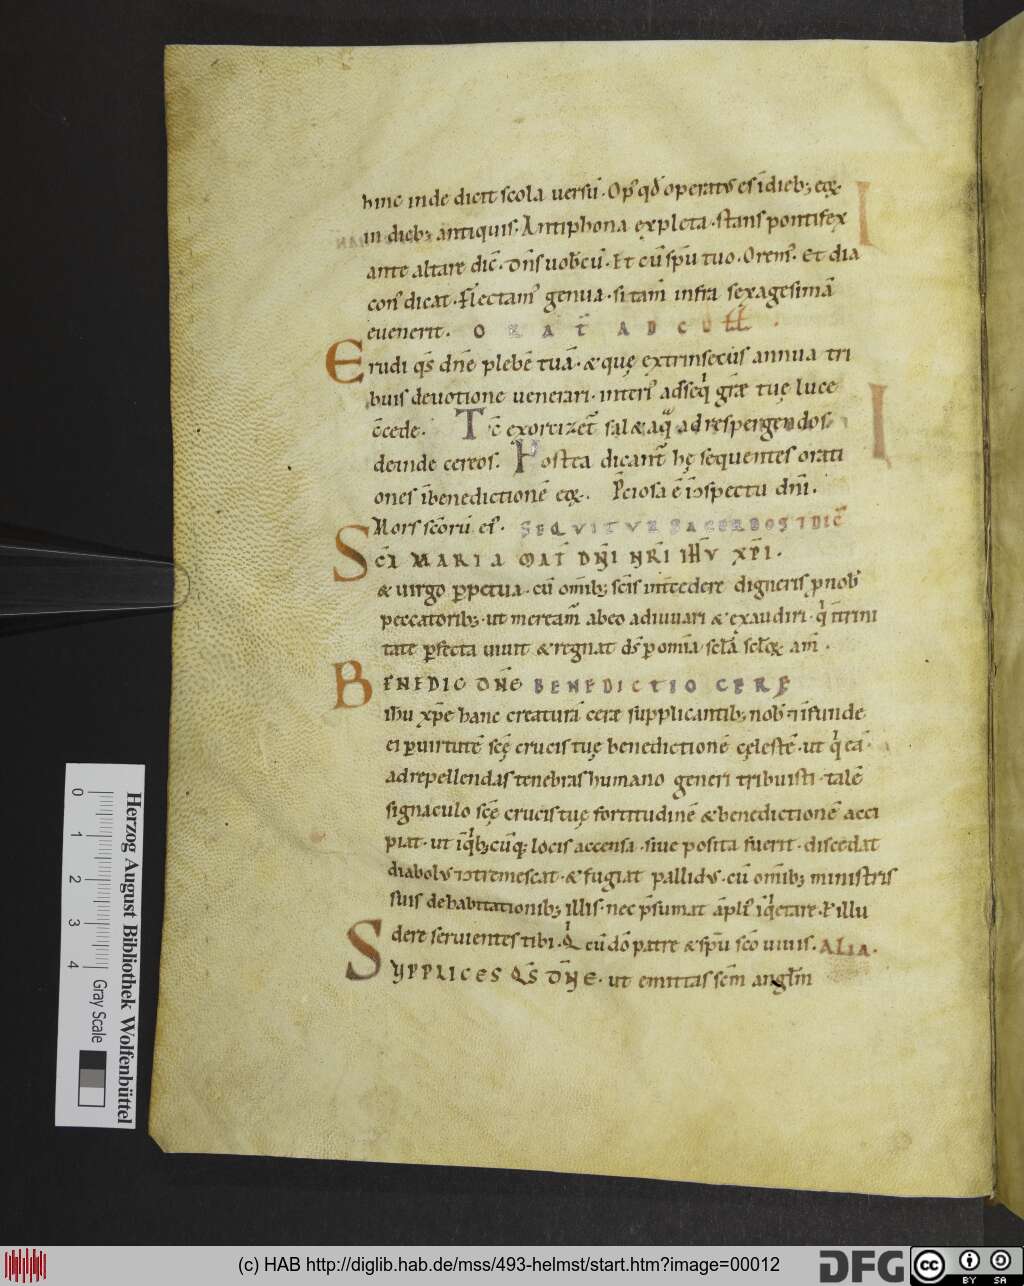 hinc inde dicit scola uersū. Op̄ qd̄ operatus es ī dieb; eoꝝ.
in dieb; antiquis. Antiphona expleta. stans pontifex
ante altare dic̄. Dn̄s uob̄cū. Et cū sp̄u tuo. Orem᷒. Et dia
con᷒ dicat. Flectam᷒ genua. si tam̄ infra sexagesimā
euenerit. ORAT AD
Erudi qs̄ dn̄e plebē tuā. & quę extrinsecus annua tri
buis deuotione uenerari. interi᷒ adseq̇ gr̄æ tuę luce
c̄cede. Tc̄ exorcizet̄ sal & aq̄ ad respergendos.
deinde cereos. Postea dicant̄ hę sequentes orati
ones ī benedictionē eoꝝ. P̄ciosa ē ī ↄspectu dn̄i.
Mors sc̄orū ei᷒. SEQVITVR SACERDOS 7 DIC̄
SC̄A MARIA MAT̄ DN̄I NR̄I IH̄V XP̄I.
& uirgo ꝑpetua. cū om̄ib; sc̄is int̄cedere digneris ꝓ nob̄
peccatorib;. ut meream̄ ab eo adiuuari & exaudiri. q̇ ī trini
tate ꝑfecta uiuit & regnat ds̄ ꝑ om̄ia. sc̄la sc̄loꝝ. am̄.
BENEDIC DN̄E BENEDICTIO CERE
ih̄u xp̄e hanc creaturā ceræ supplicantib; nob̄ 7 īfunde
ei ꝑ uirtutē sc̄ę crucis tuę benedictionē cęlestē. ut q̇ eā.
ad repellendas tenebras humano generi tribuisti. talē
signaculo sc̄ę crucis tuę fortitudinē & benedictionē acci
piat. ut ī q̇b;cūq; locis accensa. siue posita fuerit. discedat
diabolus ↄtremescat. & fugiat pallidus. cū om̄ib; ministris
suis de habitationib; illis. nec p̄sumat āpli᷒ īq̇etare. t̄ illu
dere seruientes tibi. Q̇ cū dō patre & sp̄u sc̄o uiuis. ALIA.
SUPPLICES QS̄ DN̄E. ut emittas sc̄m angl̄m
Herzog August Bibliothek Wolfenbüttel
0 1 2 3 4 Gray Scale
(c) HAB http://diglib.hab.de/mss/493-helmst/start.htm?image=00012
DFG
cc BY SA